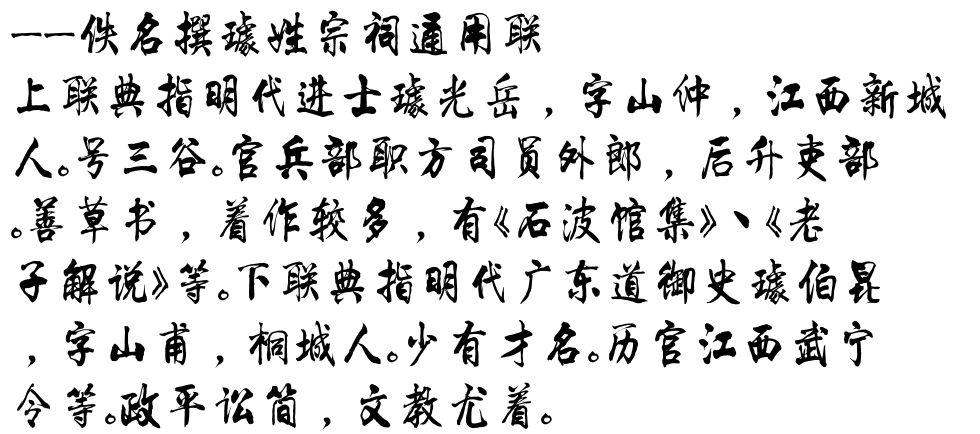 ——佚名撰璩姓宗祠通用联
上联典指明代进士璩光岳，字山仲，江西新城
人。号三谷。官兵部职方司员外郎，后升吏部
。善草书，着作较多，有《石波馆集》、《老
子解说》等。下联典指明代广东道御史璩伯昆
，字山甫，桐城人。少有才名。历官江西武宁
令等。政平讼简，文教尤着。